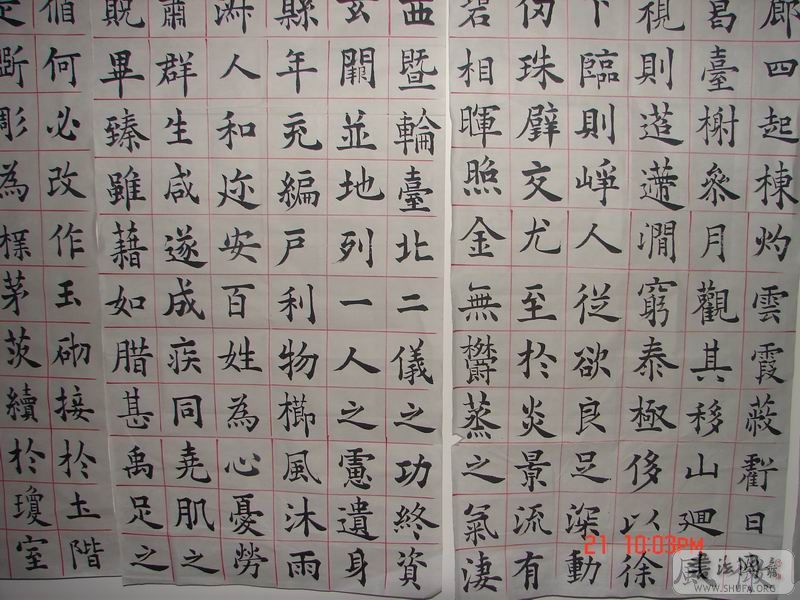 廊四起棟灼雲霞蔽虧日
臺榭參月觀其移山迴
視則迢遰澗窮泰極侈以徐
下臨則崢人從欲良足深動
仞珠壁交尤至於炎景流有
碧相暉照金無鬱蒸之氣淒
西暨輪臺北二儀之功終資
玄闕並地列一人之慮遺身
縣年充編戶利物櫛風沐雨
人和迩安百姓為心憂勞
肅群生咸遂成疾同堯肌之
貺畢臻雖藉如腊甚禹足之
何必改作玉砌接於土階
斲彫為樸茅茨續於瓊室
21 10:03PM
WWW.SHUFA.ORG